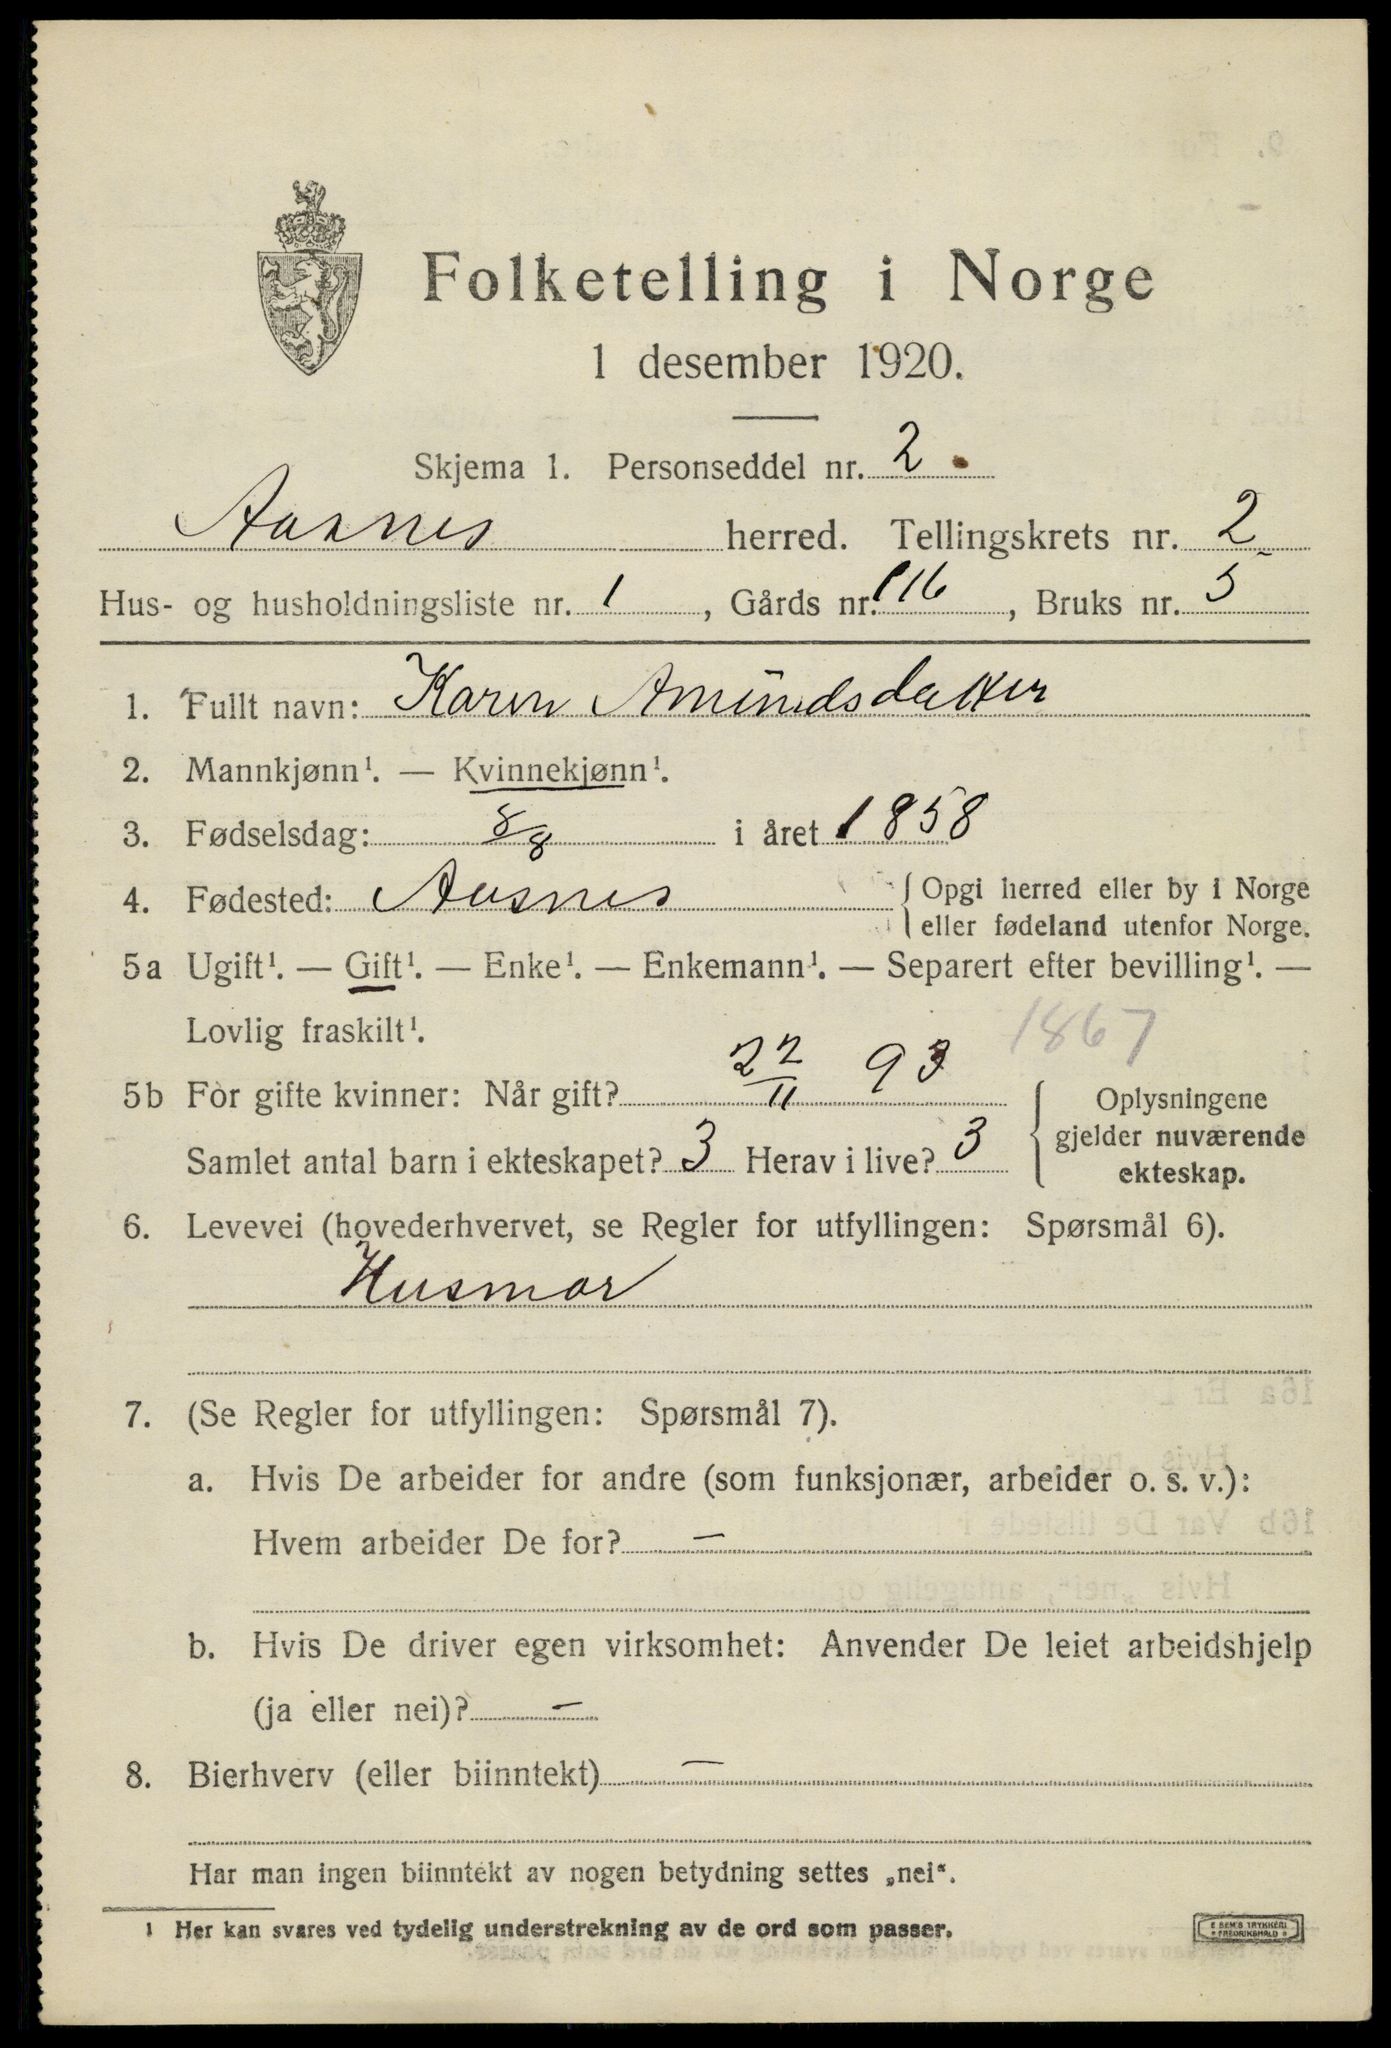 Folketelling i Norge
1 desember 1920.
Skjema 1. Personseddel nr. 2
Aasnes herred. Tellingskrets nr. 2
Hus- og husholdningsliste nr. 1, Gårds nr. 116, Bruks nr. 5
1. Fullt navn: Karen Amundsdatter
2. Mannkjønn¹. — Kvinnekjønn¹.
3. Fødselsdag: 8/8 i året 1858
4. Fødested: Aasnes { Opgi herred eller by i Norge
eller fødeland utenfor Norge.
5a Ugift¹. — Gift¹. — Enke¹. — Enkemann¹. — Separert efter bevilling¹. —
Lovlig fraskilt¹.
1867
5b For gifte kvinner: Når gift? 22/11 93
Samlet antal barn i ekteskapet? 3 Herav i live? 3
{ Oplysningene
gjelder nuværende
ekteskap.
6. Levevei (hovederhvervet, se Regler for utfyllingen: Spørsmål 6).
Husmor
7. (Se Regler for utfyllingen: Spørsmål 7).
a. Hvis De arbeider for andre (som funksjonær, arbeider o. s. v.):
Hvem arbeider De for? —
b. Hvis De driver egen virksomhet: Anvender De leiet arbeidshjelp
(ja eller nei)? —
8. Bierhverv (eller biinntekt) —
Har man ingen biinntekt av nogen betydning settes „nei“.
1 Her kan svares ved tydelig understrekning av de ord som passer.
E SEM'S TRYKKERI
FREDRIKSHALD